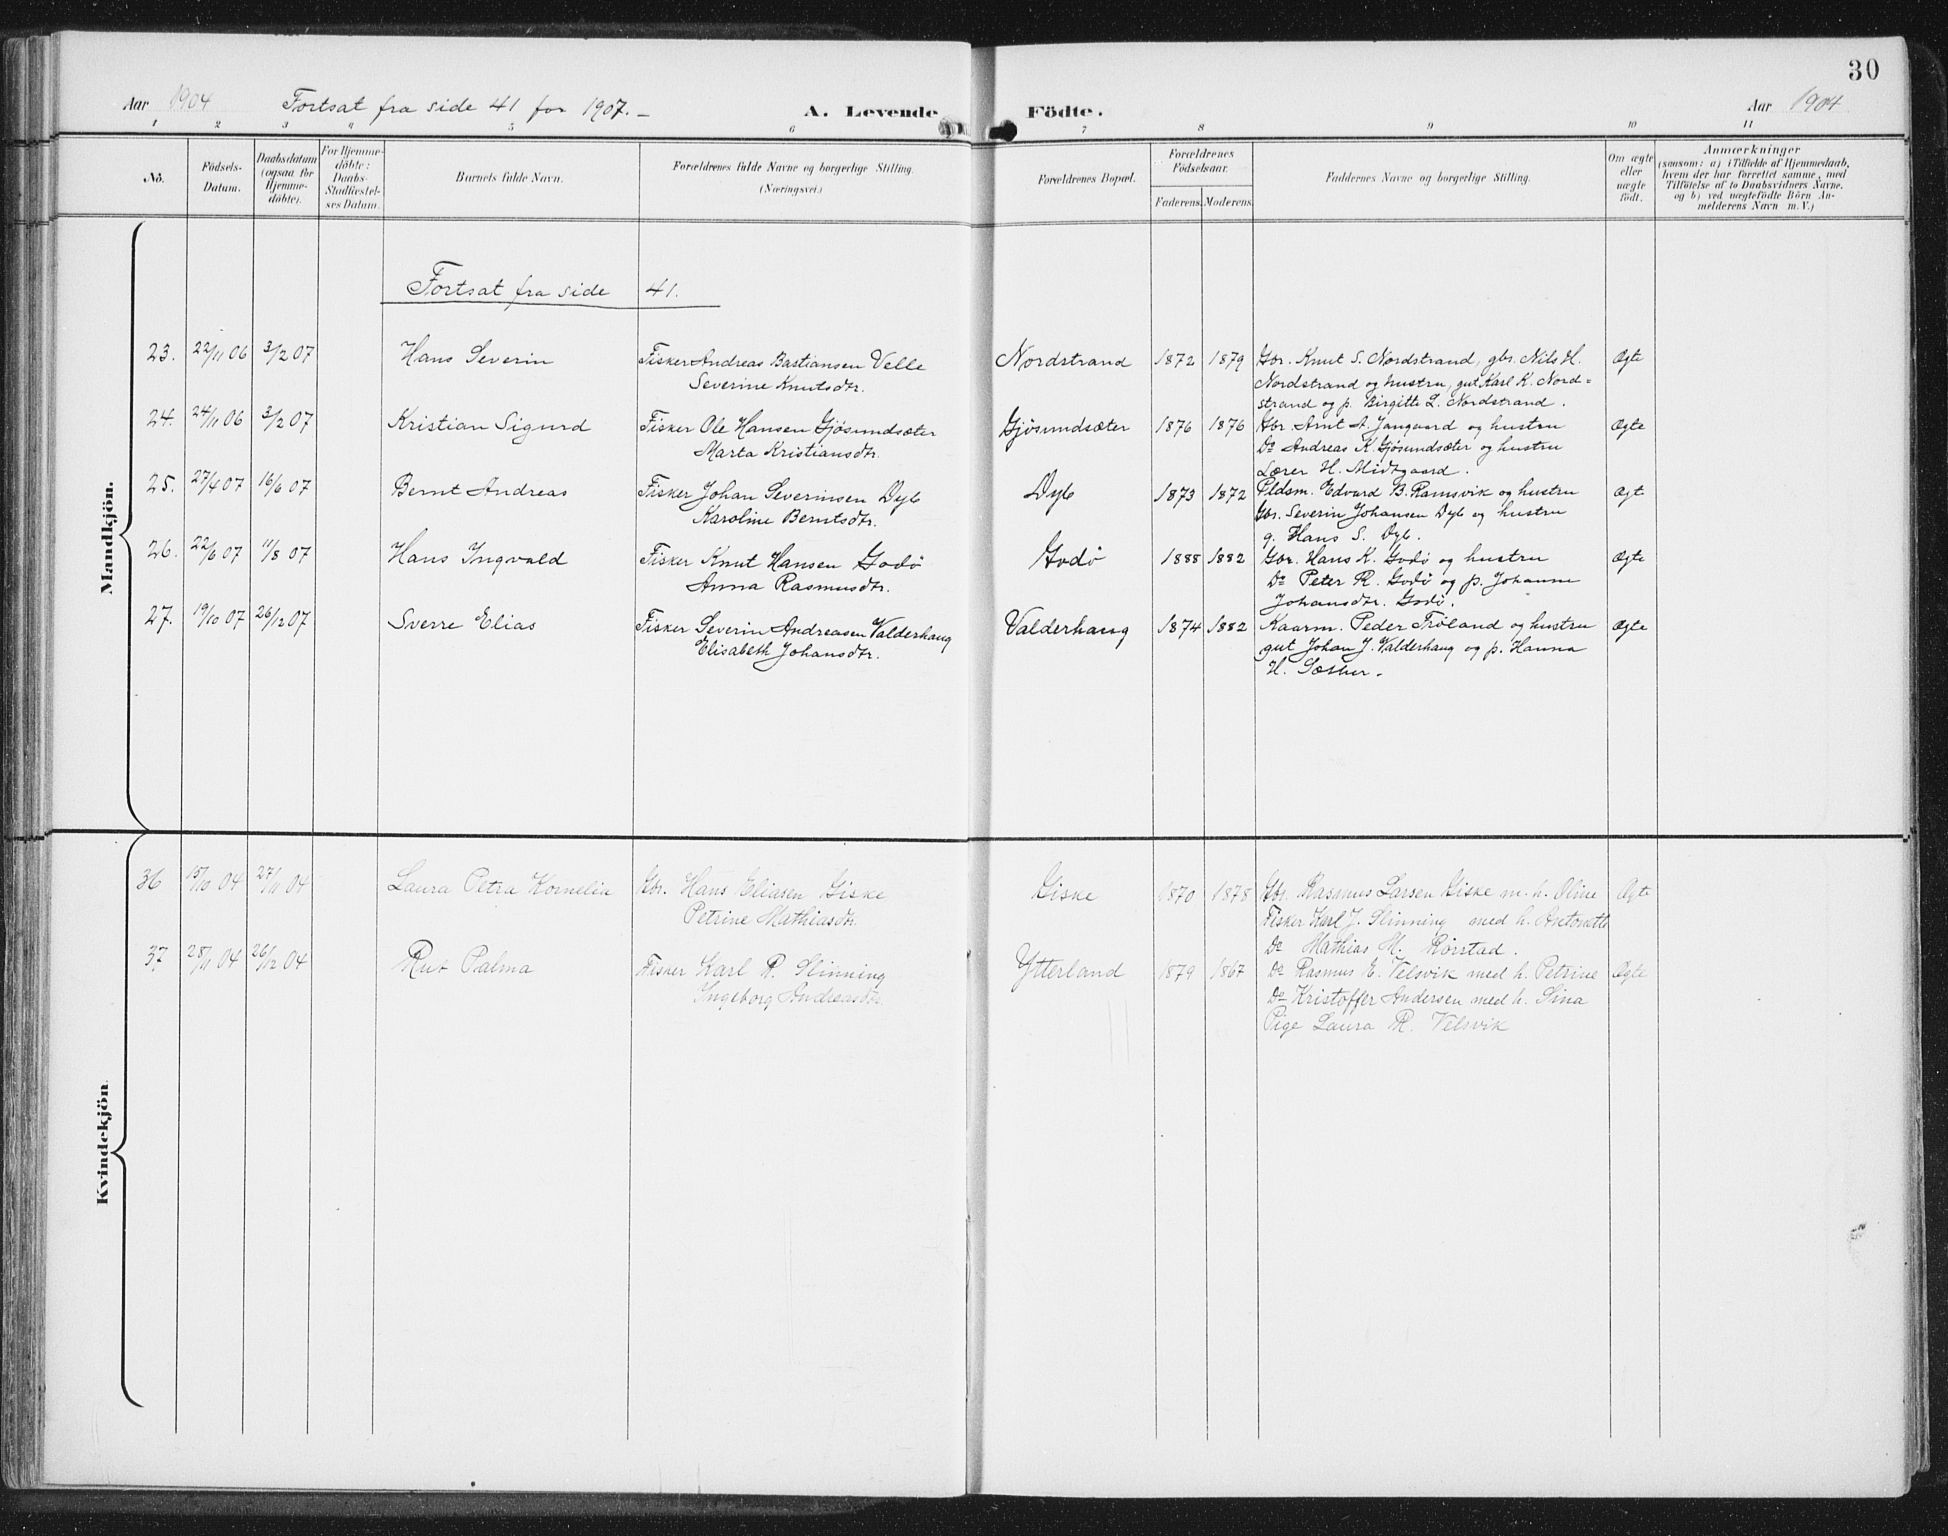 30
Aar 1904 Fortsat fra side 41 for 1907. – A. Levende Födte. Aar 1904
1 2 3 4 5 6 7 8 9 10 11
No.
Födsels-
Datum.
Daabsdatum
(ogsaa for
Hjemme-
döbte).
For Hjemme-
döbte:
Daabs-
Stadfæstel-
ses Datum.
Barnets fulde Navn.
Forældrenes fulde Navne og borgerlige Stilling.
(Næringsvei.)
Forældrenes Bopæl.
Forældrenes
Födselsaar.
Faderens. Moderens.
Faddernes Navne og borgerlige Stilling.
Om ægte
eller
uægte
födt.
Anmærkninger
(saasom: a) i Tilfælde af Hjemmedaab,
hvem der har forrettet samme, med
Tilföielse af to Daabsvidners Navne,
og b) ved uægtefödte Börn An-
melderens Navn m. V.)
Mandkjön.
Fortsat fra side 41.
23. 22/11 06 3/2 07 Hans Severin Fisker Andreas Bastiansen Velle Nordstrand 1872 1879 Gbr. Knut S. Nordstrand, gbr. Nils H. Ægte
Severine Knutsdtr. Nordstrand og hustru, gut Karl K. Nord=
strand og p. Birgitte L. Nordstrand.
24. 24/11 06 3/2 07 Kristian Sigurd Fisker Ole Hansen Gjøsundsæter Gjøsundsæter 1876 1876 Gbr. Arnt A. Jangaard og hustru Ægte
Marta Kristiansdtr. Do Andreas K. Gjøsundsæter og hustru
Lærer H. Midtgaard.
25. 27/4 07 16/6 07 Bernt Andreas Fisker Johan Severinsen Dyb Dyb 1873 1872 Pldsm. Edvard B. Ramsvik og hustru Ægt
Karoline Berntsdtr. Gbr. Severin Johansen Dyb og hustru
g. Hans S. Dyb.
26. 22/6 07 11/8 07 Hans Ingvald Fisker Knut Hansen Godø Godø 1888 1882 Gbr. Hans K. Godø og hustru Ægte
Anna Rasmusdtr. Do Peter R. Godø og p. Johanne
Johansdtr. Godø.
27. 19/10 07 26/12 07 Sverre Elias Fisker Severin Andreasen Valderhaug Valderhaug 1874 1882 Kaarm. Peder Frøland og hustru Ægte
Elisabeth Johansdtr. gut Johan J. Valderhaug og p. Hanna
H. Sæther.
Kvindekjön.
36 15/10 04 27/11 04 Laura Petra Kornelia Gbr. Hans Eliasen Giske Giske 1870 1878 Gbr. Rasmus Larsen Giske m. h. Oline Ægte
Petrine Mathiasdtr. Fisker Karl J. Slinning med h. Antonette
Do Mathias M. Rørstad.
37. 28/11 04 26/12 04 Rut Palma Fisker Karl R. Slinning Ytterland 1879 1867 Do Rasmus E. Velsvik med h. Petrine Ægte
Ingeborg Andreasdtr. Do Kristoffer Andersen med h. Sina
Pige Laura R. Velsvik